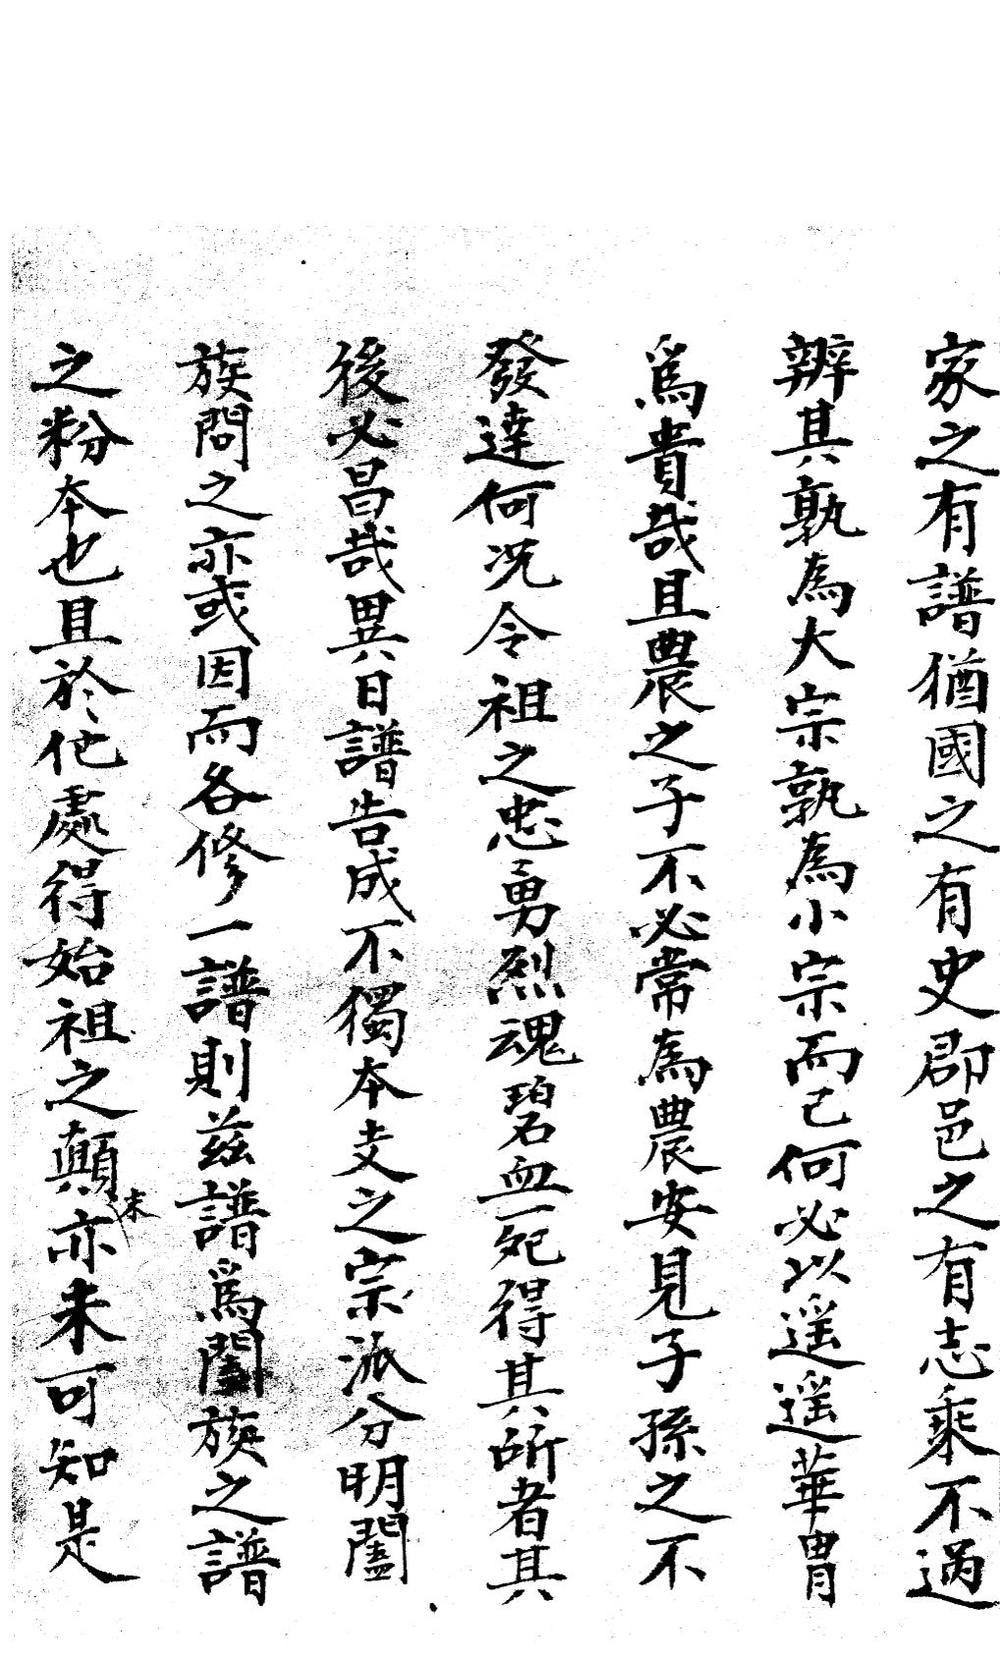 家之有譜猶國之有史郡邑之有志乘不過
辨其孰為大宗孰為小宗而已何必以遥遥華胄
爲貴哉且農之子不必常為農安見子孫之不
發達何况令祖之忠勇烈魂碧血一死得其所者其
後必昌哉異日譜告成不獨本支之宗派分明闔
族問之亦或因而各修一譜則兹譜爲闔族之譜
之粉本也且於他處得始祖之顛末亦未可知是